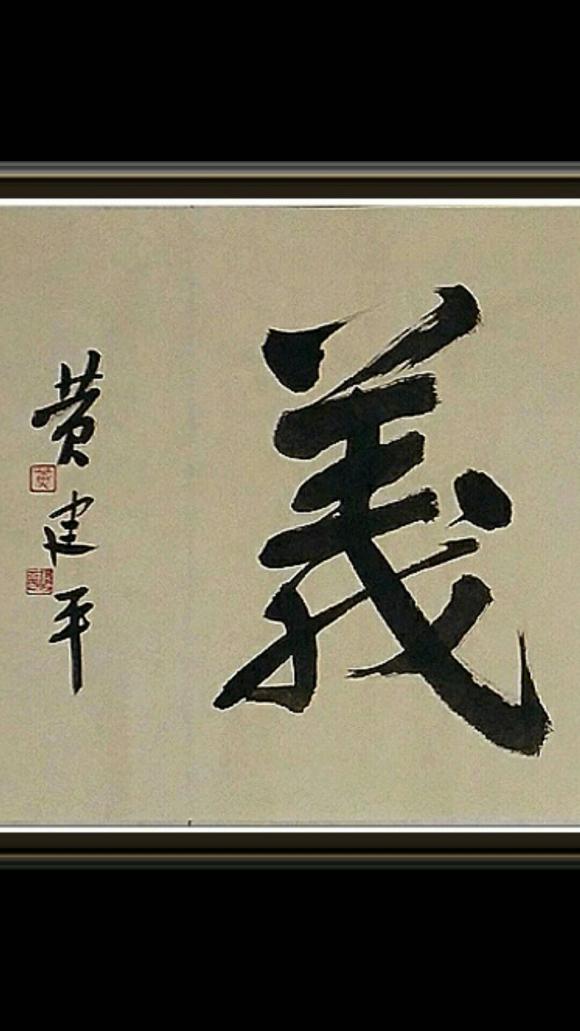 義
黄建平